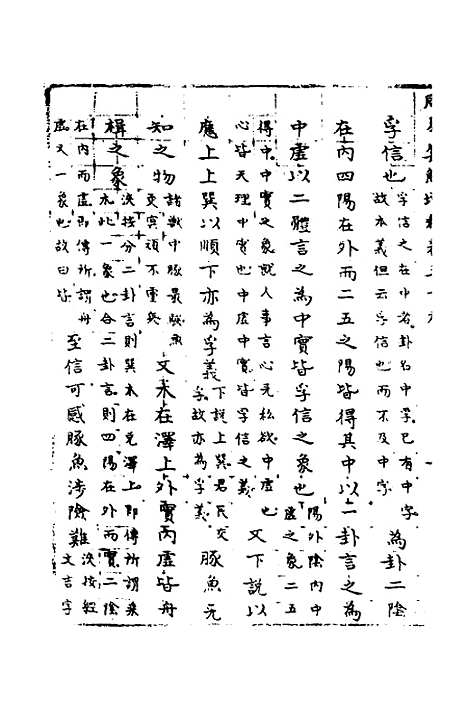 孚信也
孚信之在中者卦名中孚已有中字
故本義但云孚信也而不及中字
為卦二陰
在內四陽在外而二五之陽皆得其中以一卦言之為
中虛以二體言之為中實皆孚信之象也
陽外陰內中
虛之象二五
得中中實之象就人事言心无私欲中虛也
心皆天理中實也中虛中實皆孚信之義
又下說以
應上上巽以順下亦為孚義
下說上巽君民交
孚故亦為孚義
豚魚无
知之物
諸獸中豚最躁魚
更冥頑不靈矣
又木在澤上外實內虛皆舟
楫之象
浹按分二卦言則巽木在兌澤上即傳所謂乘
木此一象也合二卦言則四陽在外而實二陰
在內而虛即傳所謂舟
虛又一象也故曰皆
至信可感豚魚涉險難
浹按經
文言字